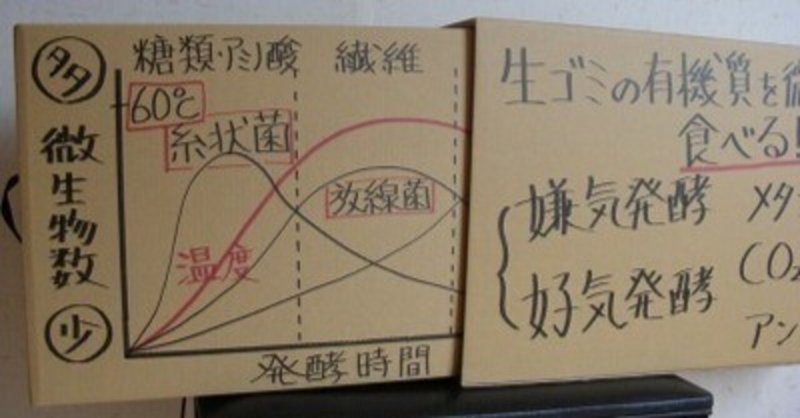 多
微生物数
少
糖類・アミノ酸
繊維
60℃
糸状菌
放線菌
温度
発酵時間
生ゴミの有機質を微
食べる!!
嫌気発酵
メタ
好気発酵
CO₂
アン